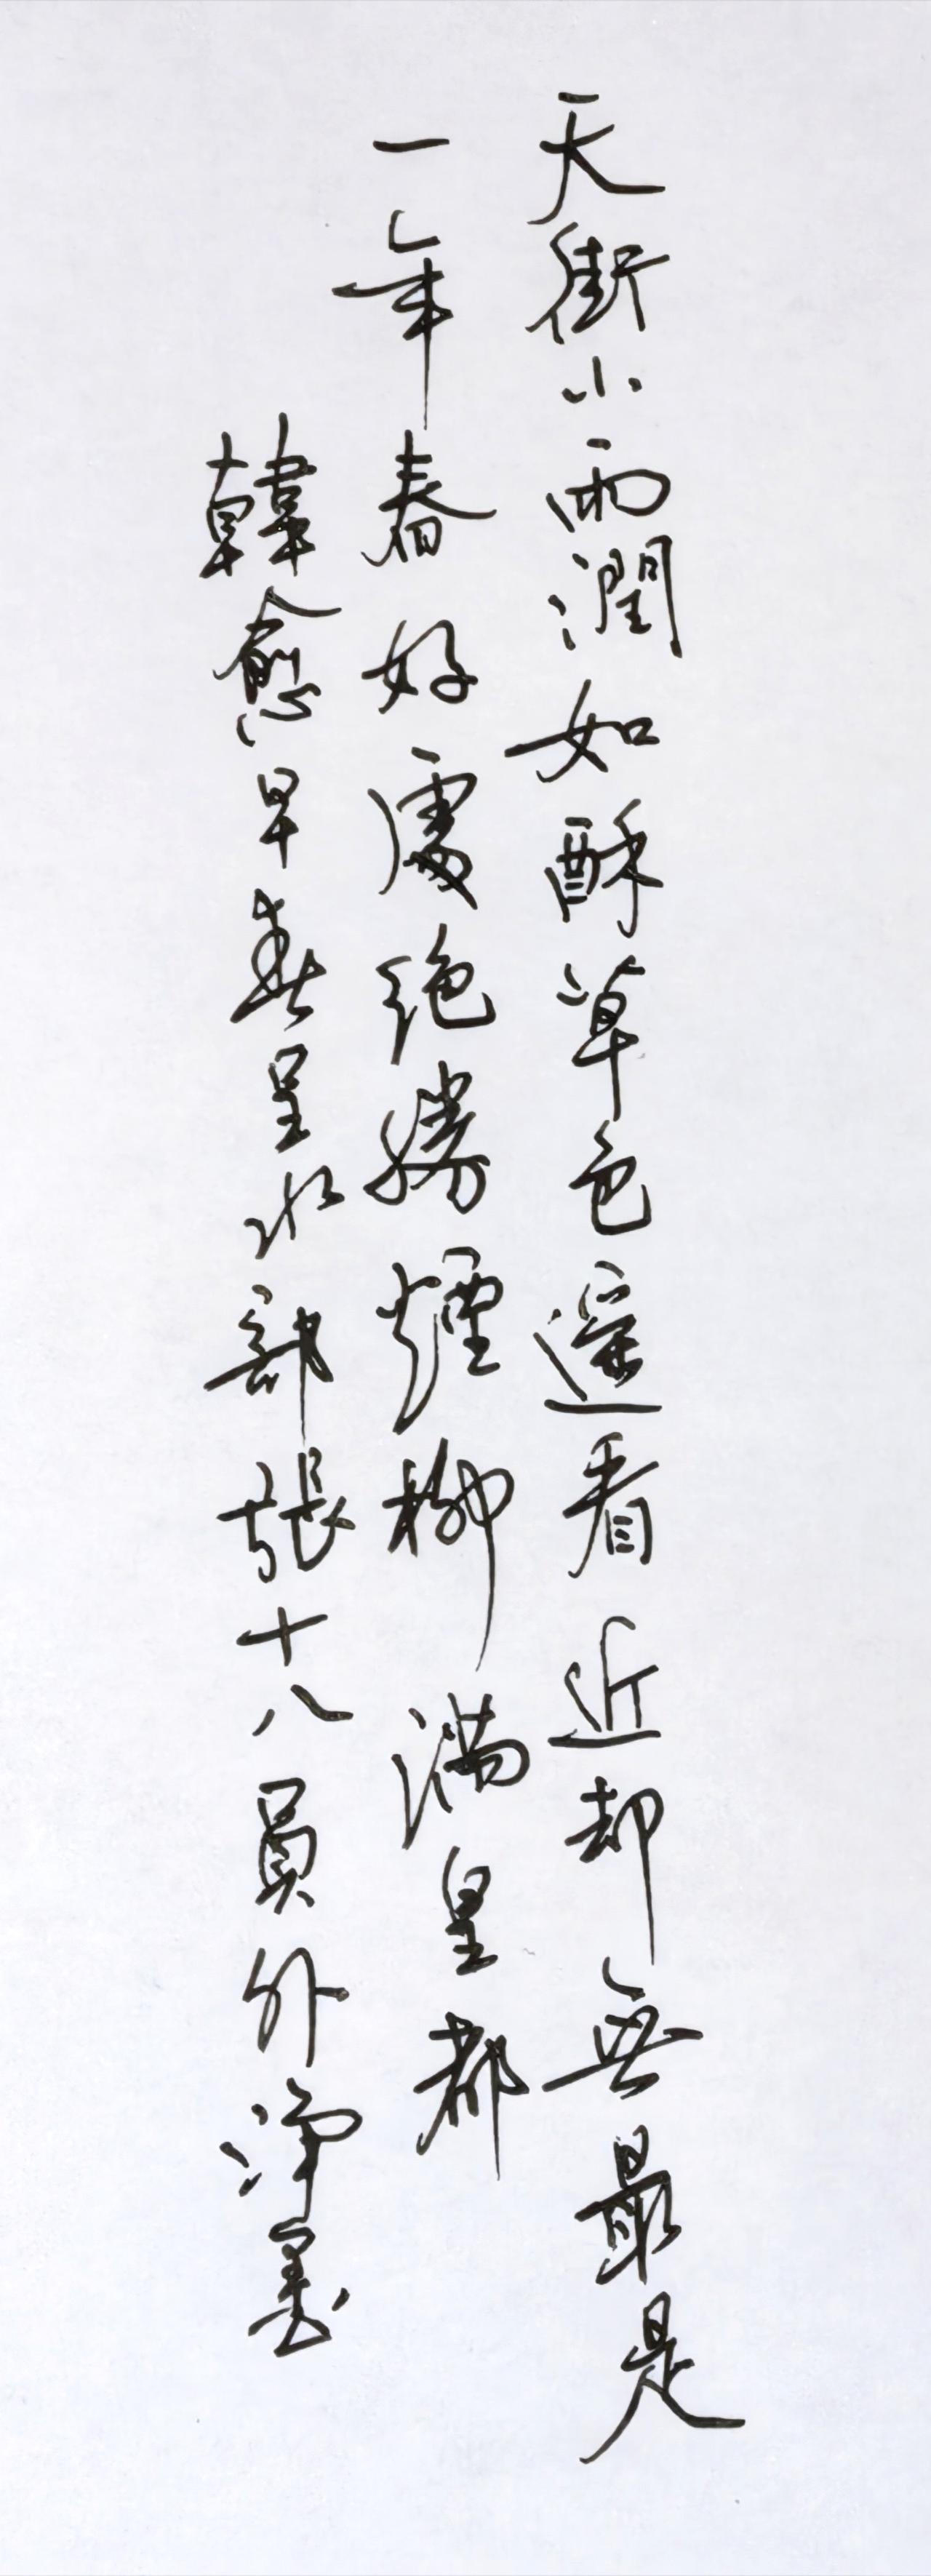 天街小雨潤如酥草色遥看近却無最是
一年春好處絕勝煙柳滿皇都
韓愈早春呈水部張十八員外淨墨